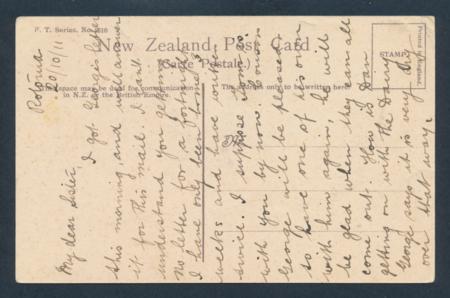 P. T. Series. No.
New Zealand Post Card
(Carte Postale.)
STAMP.
This space may be used for communication
in N.Z. & the British Empire.
The address only to be written here
Rotorua
20/10/11
My dear Sister,
I got George's letter
this morning and will answer
it for this mail. I can't
understand you getting
no letter for a fortnight
I have only been home 3
weeks and have written
twice. I suppose is
with you by now
George will be pleased
to have one of his own
with him again, he will
be glad when they can all
come out. How is Dan
getting on with the Dairy
George says it is very dry
over that way.